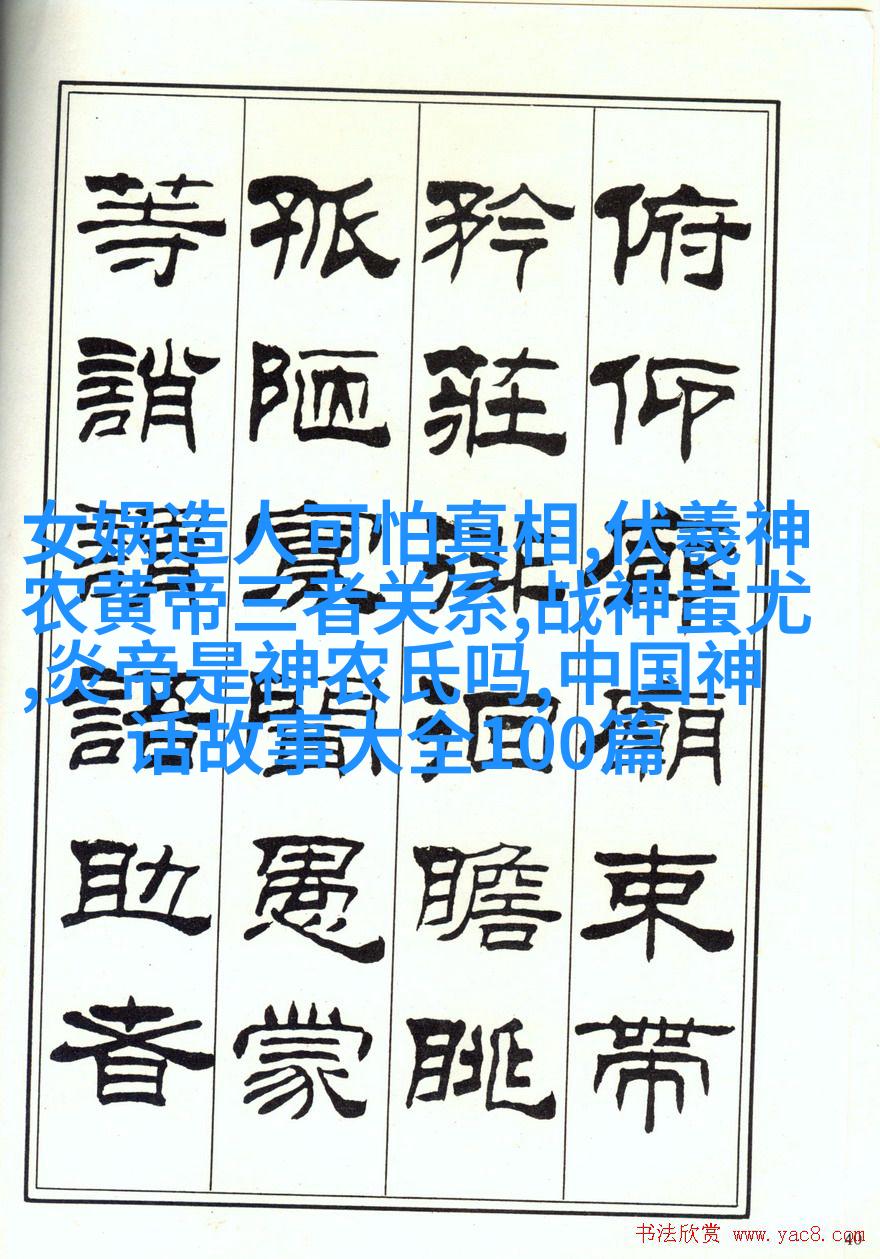 俯仰廊廟束帶
矜莊徘徊瞻眺
孤陋寡聞愚蒙
等誚謂語助者
女娲造人可怕真相,伏羲神
农黄帝三者关系,战神蚩尤
,炎帝是神农氏吗,中国神
话故事大全100篇
书法欣赏 www.yac8.com
40